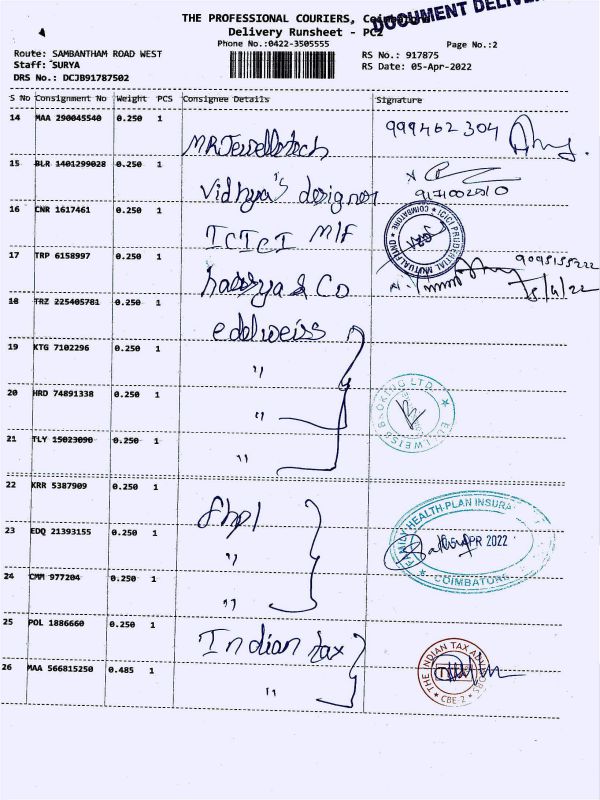 THE PROFESSIONAL COURIERS, Coimbatore
DOCUMENT DELIVER
Delivery Runsheet - PC2
Phone No.:0422-3505555
Page No.:2
Route: SAMBANTHAM ROAD WEST
RS No.: 917875
Staff: SURYA
RS Date: 05-Apr-2022
DRS No.: DCJB91787502
S No Consignment No Weight PCS Consignee Details Signature
14 MAA 290045540 0.250 1
999462 304
15 BLR 1401299028 0.250 1
vidhya's designer
16 CNR 1617461 0.250 1
ICICI M/F
COIMBATORE * ICICI PRUDENTIAL MUTUAL FUND *
17 TRP 6158997 0.250 1
& Co
5/4/22
18 TRZ 225405781 0.250 1
edelweiss
19 KTG 7102296 0.250 1
"
20 HRD 74891338 0.250 1
"
EDELWEISS BROKING LTD. *
21 TLY 15023090 0.250 1
"
22 KRR 5387909 0.250 1
fhpl
HEALTH-PLAN INSURA
23 EDQ 21393155 0.250 1
"
APR 2022
24 CMM 977204 0.250 1
"
* COIMBATORE
25 POL 1886660 0.250 1
Indian tax
26 MAA 566815250 0.485 1
"
* THE INDIAN TAX
* CBE-2 *